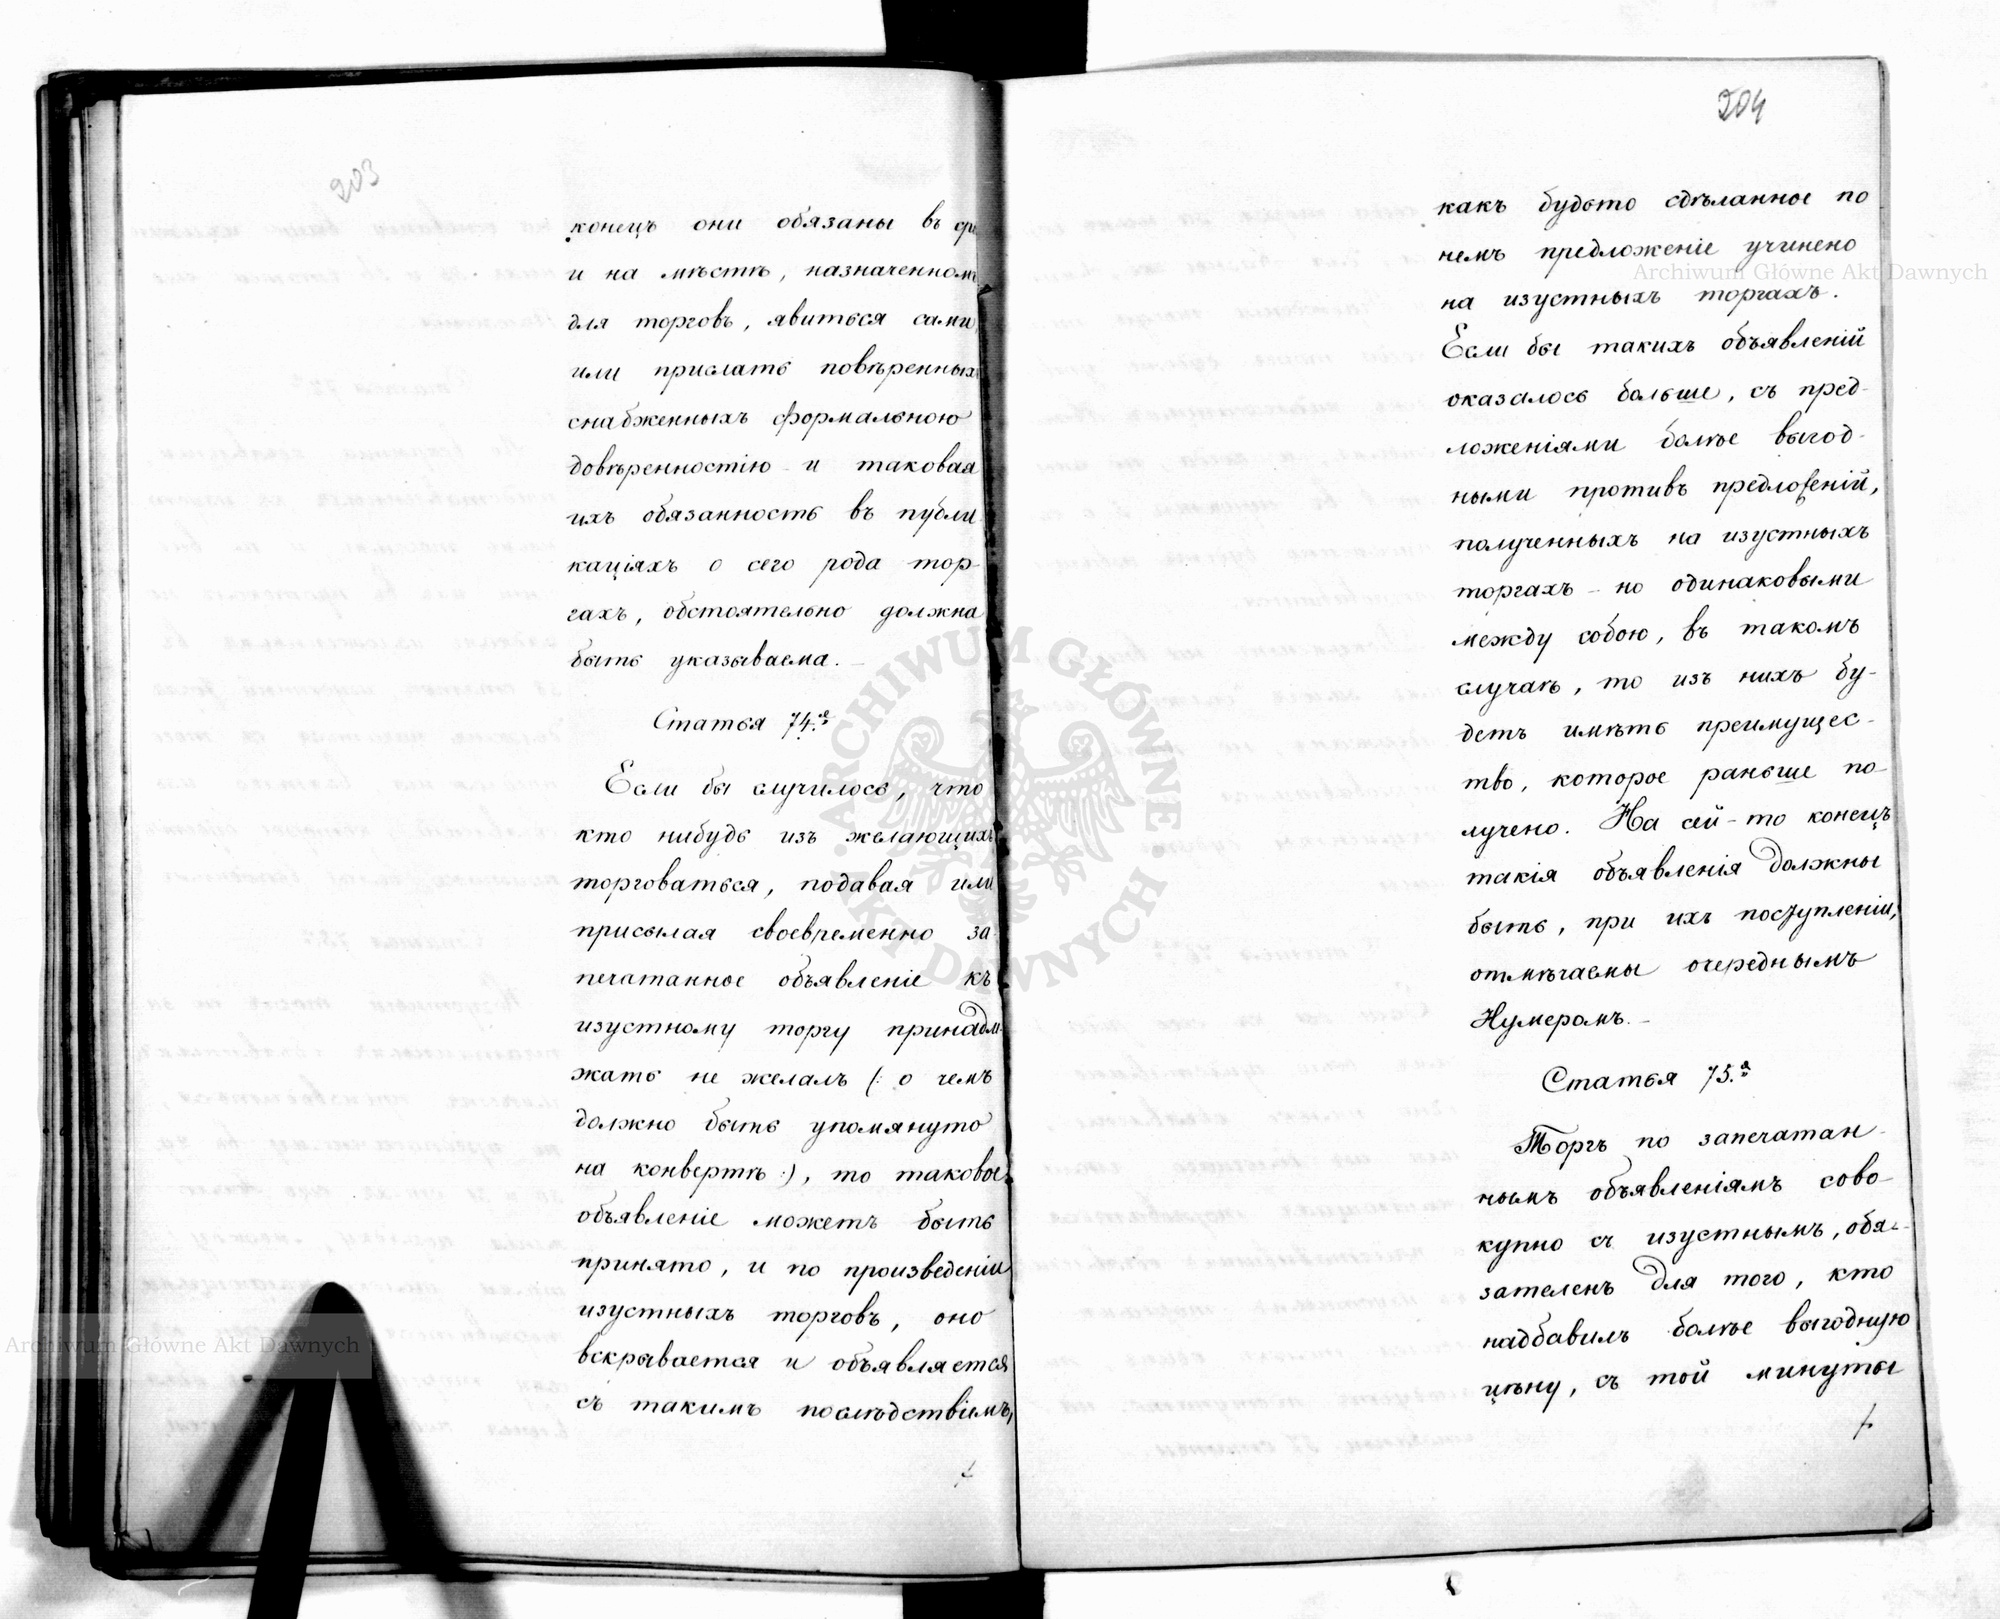 203
конецъ они обязаны въ
и на мѣстѣ, назначенномъ
для торговъ, явиться сами,
или прислать повѣренныхъ
снабженныхъ формальною
довѣренностію - и таковая
ихъ обязанность въ публи-
каціяхъ о сего рода тор-
гахъ, обстоятельно должна
быть указываема. -
Статья 74.я
Если бы случилось, что
кто нибудь изъ желающихъ
торговаться, подавая или
присылая своевременно за-
печатанное объявленіе къ
изустному торгу принадле-
жать не желалъ (: о чемъ
должно быть упомянуто
на конвертѣ :), то таковое
объявленіе можетъ быть
принято, и по произведеніи
изустныхъ торговъ, оно
вскрывается и объявляется
съ такимъ послѣдствіемъ,
204
какъ будьто сдѣланное по
немъ предложеніе учинено
на изустныхъ торгахъ.
Если бы такихъ объявленій
оказалось больше, съ пред-
ложеніями болѣе выгод-
ными противъ предложеній,
полученныхъ на изустныхъ
торгахъ - но одинаковыми
между собою, въ такомъ
случаѣ, то изъ нихъ бу-
детъ имѣть преимущес-
тво, которое раньше по-
лучено. На сей-то конецъ
такія объявленія должны
быть, при ихъ поступленіи,
отмѣчаемы очереднымъ
Нумеромъ. -
Статья 75.я
Торгъ по запечатан-
нымъ объявленіямъ сово-
купно съ изустнымъ, обя-
зателенъ для того, кто
надбавилъ болѣе выгодную
цѣну, съ той минуты
Archiwum Główne Akt Dawnych
Archiwum Główne Akt Dawnych
ARCHIWUM GŁÓWNE AKT DAWNYCH